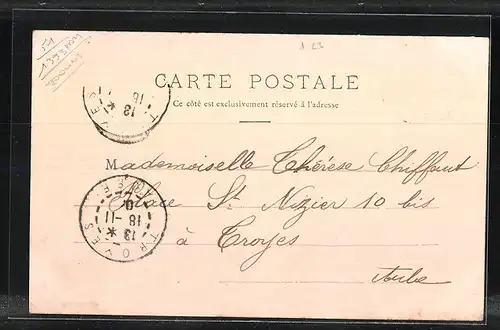 CARTE POSTALE
Ce côté est exclusivement réservé à l'adresse
Mademoiselle Thérèse Chiffaut
Place St Nizier 10 bis
à Troyes
Aube
TROYES
AUBE
13
18-11
02